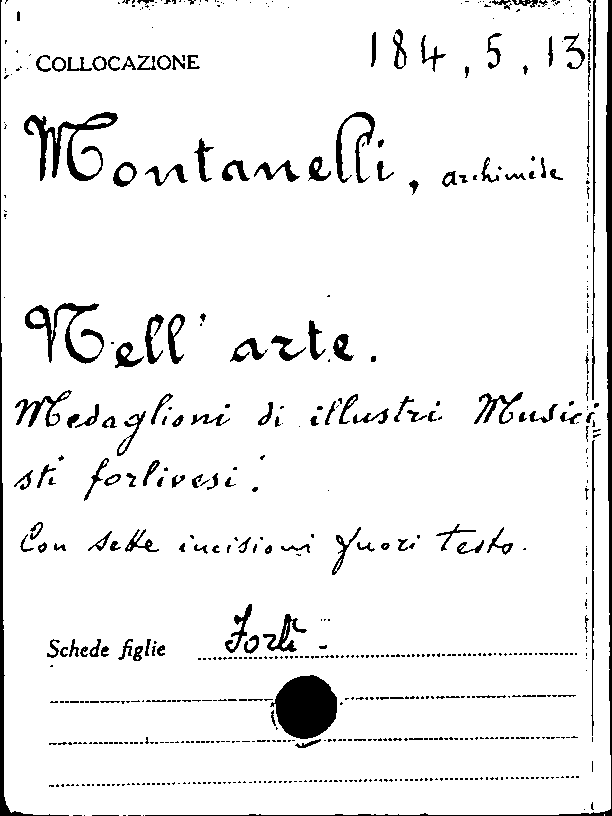 COLLOCAZIONE 184, 5, 13
Montanelli, archimede
Nell' arte.
Medaglioni di illustri Musici
sti forlivesi.
Con sette incisioni fuori testo.
Schede figlie Forlì -